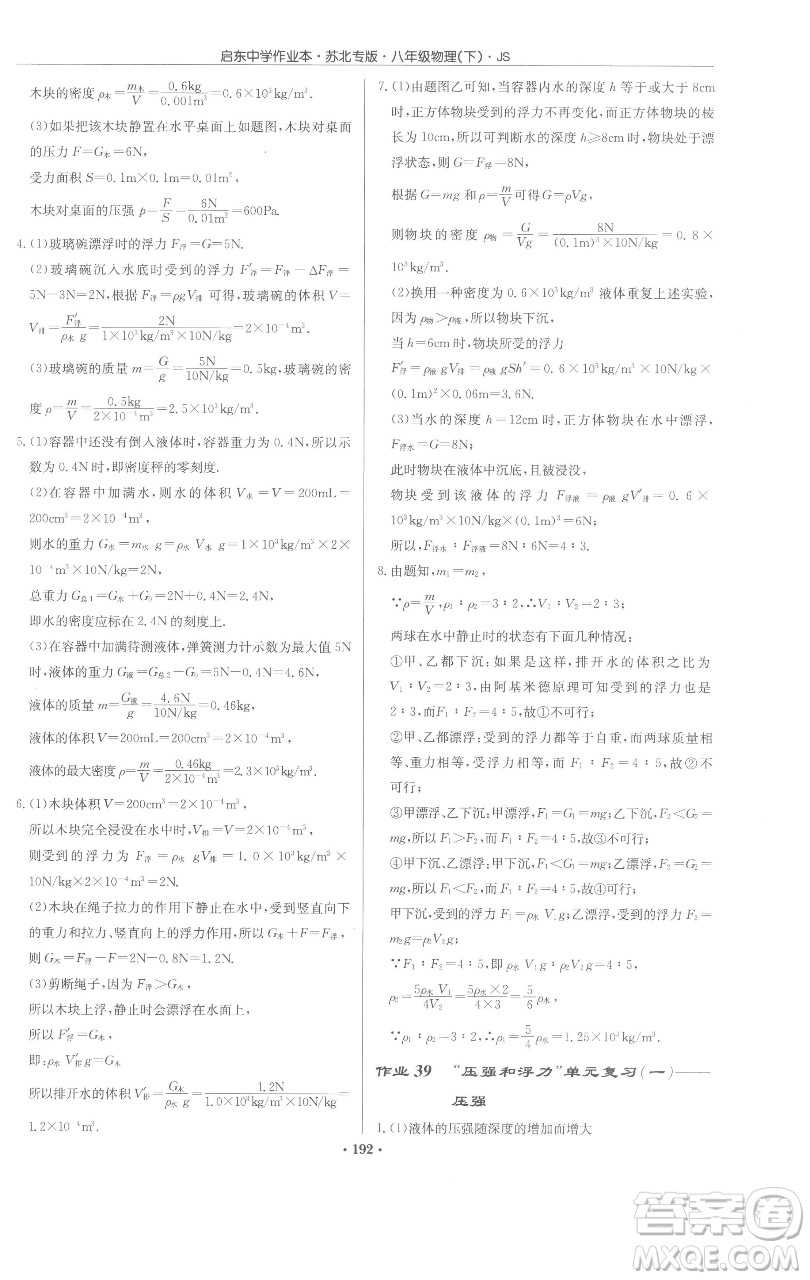 启东中学作业本·苏北专版·八年级物理(下)·JS
木块的密度 ρ木=m木/V=0.6kg/0.001m³=0.6×10³kg/m³.
(3)如果把该木块静置在水平桌面上如题图,木块对桌面
的压力 F=G木=6N,
受力面积 S=0.1m×0.1m=0.01m²,
木块对桌面的压强 p=F/S=6N/0.01m²=600Pa.
4.(1)玻璃碗漂浮时的浮力 F浮=G=5N.
(2)玻璃碗沉入水底时受到的浮力 F′浮=F浮-ΔF浮=
5N-3N=2N,根据 F浮=ρgV排 可得,玻璃碗的体积 V=
V排=F′浮/ρ水 g=2N/1×10³kg/m³×10N/kg=2×10⁻⁴m³.
(3)玻璃碗的质量 m=G/g=5N/10N/kg=0.5kg,玻璃碗的密
度 ρ=m/V=0.5kg/2×10⁻⁴m³=2.5×10³kg/m³.
5.(1)容器中还没有倒入液体时,容器重力为 0.4N,所以示
数为 0.4N 时,即密度秤的零刻度.
(2)在容器中加满水,则水的体积 V水=200mL=
200cm³=2×10⁻⁴m³,
则水的重力 G水=m水 g=ρ水 V水 g=1.0×10³×2×
10⁻⁴m³×10N/kg=2N,
总重力 G总1=G水+G0=2N+0.4N=2.4N,
即水的密度应标在 2.4N 的刻度上.
(3)在容器中加满待测液体,弹簧测力计示数为最大值 5N
时,液体的重力 G液=G总2-G0=5N-0.4N=4.6N,
液体的质量 m=G液/g=4.6N/10N/kg=0.46kg,
液体的体积 V=200mL=200cm³=2×10⁻⁴m³,
液体的最大密度 ρ=m/V=0.46kg/2×10⁻⁴m³=2.3×10³kg/m³.
6.(1)木块体积 V=200cm³=2×10⁻⁴m³,
所以木块完全浸没在水中时,V排=V=2×10⁻⁴m³,
则受到的浮力 F浮=ρ水 gV排=1.0×10³kg/m³×
10N/kg×2×10⁻⁴m³=2N.
(2)木块在绳子拉力的作用下静止在水中,受到竖直向下
的重力和拉力、竖直向上的浮力作用,所以 G木+F=F浮,
则 G木=F浮-F=2N-0.8N=1.2N.
(3)剪断绳子,因为 F浮>G木,
所以木块上浮,静止时会漂浮在水面上,
所以 F′浮=G木,
即:ρ水 V′排 g=G木,
所以排开水的体积 V′排=G木/ρ水 g=1.2N/1.0×10³kg/m³×10N/kg=
1.2×10⁻⁴m³.
7.(1)由题图乙可知,当容器内水的深度 h 等于或大于 8cm
时,正方体物块受到的浮力不再变化,而正方体物块的棱
长为 10cm,所以可判断水的深度 h≥8cm 时,物块处于漂
浮状态,则 G=F浮=8N,
根据 G=mg 和 ρ=m/V 可得 G=ρVg,
则物块的密度 ρ物=G/Vg=8N/(0.1m)³×10N/kg=0.8×
10³kg/m³.
(2)换用一种密度为 0.6×10³ 液体重复上述实验,
因为 ρ物>ρ液,所以物块下沉,
当 h=6cm 时,物块所受的浮力
F′浮=ρ液 gV排=ρ液 gSh′=0.6×10³kg/m³×10N/kg×
(0.1m)²×0.06m=3.6N.
(3)当水的深度 h=12cm 时,正方体物块在水中漂浮,
F浮水=G=8N;
此时物块在液体中沉底,且被浸没,
物块受到该液体的浮力 F浮液=ρ液 gV′排=0.6×
10³kg/m³×10N/kg×(0.1m)³=6N,
所以,F浮水∶F浮液=8N∶6N=4∶3.
8.由题知,m₁=m₂,
∵ρ=m/V,ρ₁∶ρ₂=3∶2,∴V₁∶V₂=2∶3,
两球在水中静止时的状态有下面几种情况:
①甲、乙都下沉:如果是这样,排开水的体积之比为
V₁∶V₂=2∶3,由阿基米德原理可知受到的浮力为
2∶3,而 F₁∶F₂=4∶5,故①不可行;
②甲、乙都漂浮:受到的浮力都等于自重,而两球质量相
等、重力相等,受浮力相等,而 F₁∶F₂=4∶5,故②不
可行;
③甲漂浮、乙下沉:甲漂浮,F₁=G₁=mg;乙下沉,F₂<G₂=
mg,所以 F₁>F₂,而 F₁∶F₂=4∶5,故③不可行;
④甲下沉、乙漂浮:甲下沉,F₁<G₁=mg;乙漂浮,F₂=G₂=
mg,所以 F₁<F₂,而 F₁∶F₂=4∶5,故④可行;
甲下沉,受到的浮力:F₁=ρ水 V₁g,乙漂浮,受到的浮力:F₂=
m₂g=ρ₂V₂g.
∵F₁∶F₂=4∶5,即 ρ水 V₁g∶ρ₂V₂g=4∶5,
ρ₂=5ρ水 V₁/4V₂=5ρ水×2/4×3=5/6ρ水,
∵ρ₁∶ρ₂=3∶2,∴ρ₁=5/4ρ水=1.25×10³kg/m³.
作业 39 “压强和浮力”单元复习(一)——
压强
1.(1)液体的压强随深度的增加而增大
·192·
答案圈
MXQE.COM